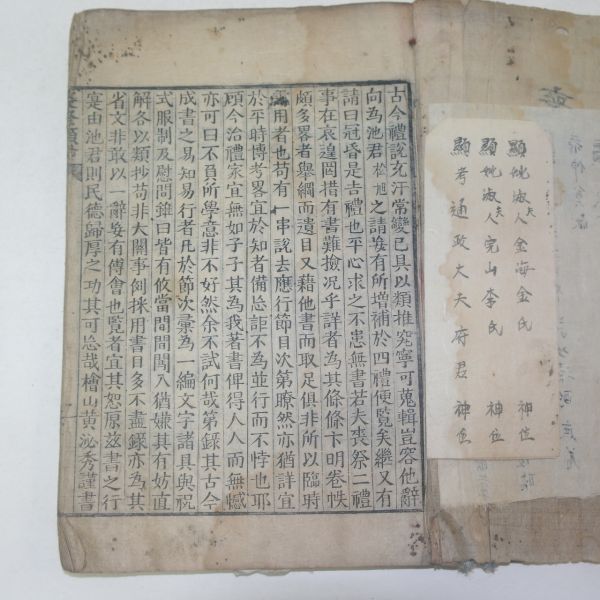 顯妣淑夫人金海金氏 神位
顯妣淑夫人完山李氏 神位
顯考通政大夫府君 神位
古今禮說充汗常變已具以類推究寧可蒐輯豈容他辭
向為池君松旭之請妄有所增補於四禮便覧矣繼又有
請曰冠昏是吉禮也平心求之不患無書若夫喪祭二禮
事在哀遑罔措有書難撿况乎詳者為其條條卞明卷帙
頗多畧者舉綱而遺目又藉他書而取足俱非所以臨時
適用者也苟有一串說去應行節目次第瞭然亦猶詳宜
於平時博考畧宜於知者備忘詎不為並行而不悖也耶
顧今治禮家宜無如子子其為我著書俾得人人而無憾
亦可曰不負所學意非不好然余不試何哉第錄其古今
成書之易知易行者凡於節次彙為一編文字諸具與祝
式服制及慰問雜曰皆有攸當間間闖入猶嫌其有妨直
解各以類抄苟非大關事例採用書目多不盡錄亦為其
省文非敢以一辭妄有傅會也覧者宜其恕原玆書之行
寔由池君則民德歸厚之功其可忘哉檜山黃泌秀謹書